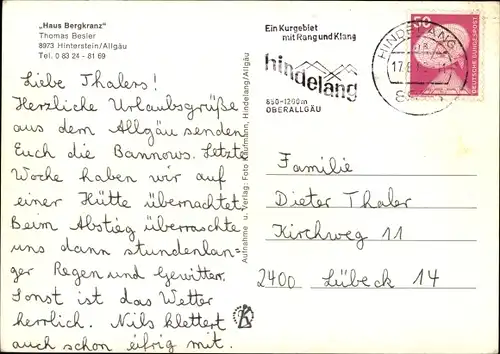 „Haus Bergkranz"
Thomas Besler
8973 Hinterstein/Allgäu
Tel. 0 83 24 - 81 69
Liebe Thalers!
Herzliche Urlaubsgrüße
aus dem Allgäu senden
Euch die Bannows. Letzte
Woche haben wir auf
einer Hütte übernachtet.
Beim Abstieg überraschte
uns dann stundenlan=
ger Regen und Gewitter.
Sonst ist das Wetter
herrlich. Nils klettert
auch schon eifrig mit.
Aufnahme u. Verlag: Foto Kaufmann, Hindelang/Allgäu
Ein Kurgebiet
mit Rang und Klang
hindelang
850-1200m
OBERALLGÄU
HINDELANG
50
DEUTSCHE BUNDESPOST
Familie
Dieter Thaler
Kirchweg 11
2400 Lübeck 14